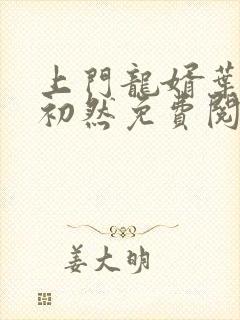 上門龍婿葉
初然免費閱
姜大明